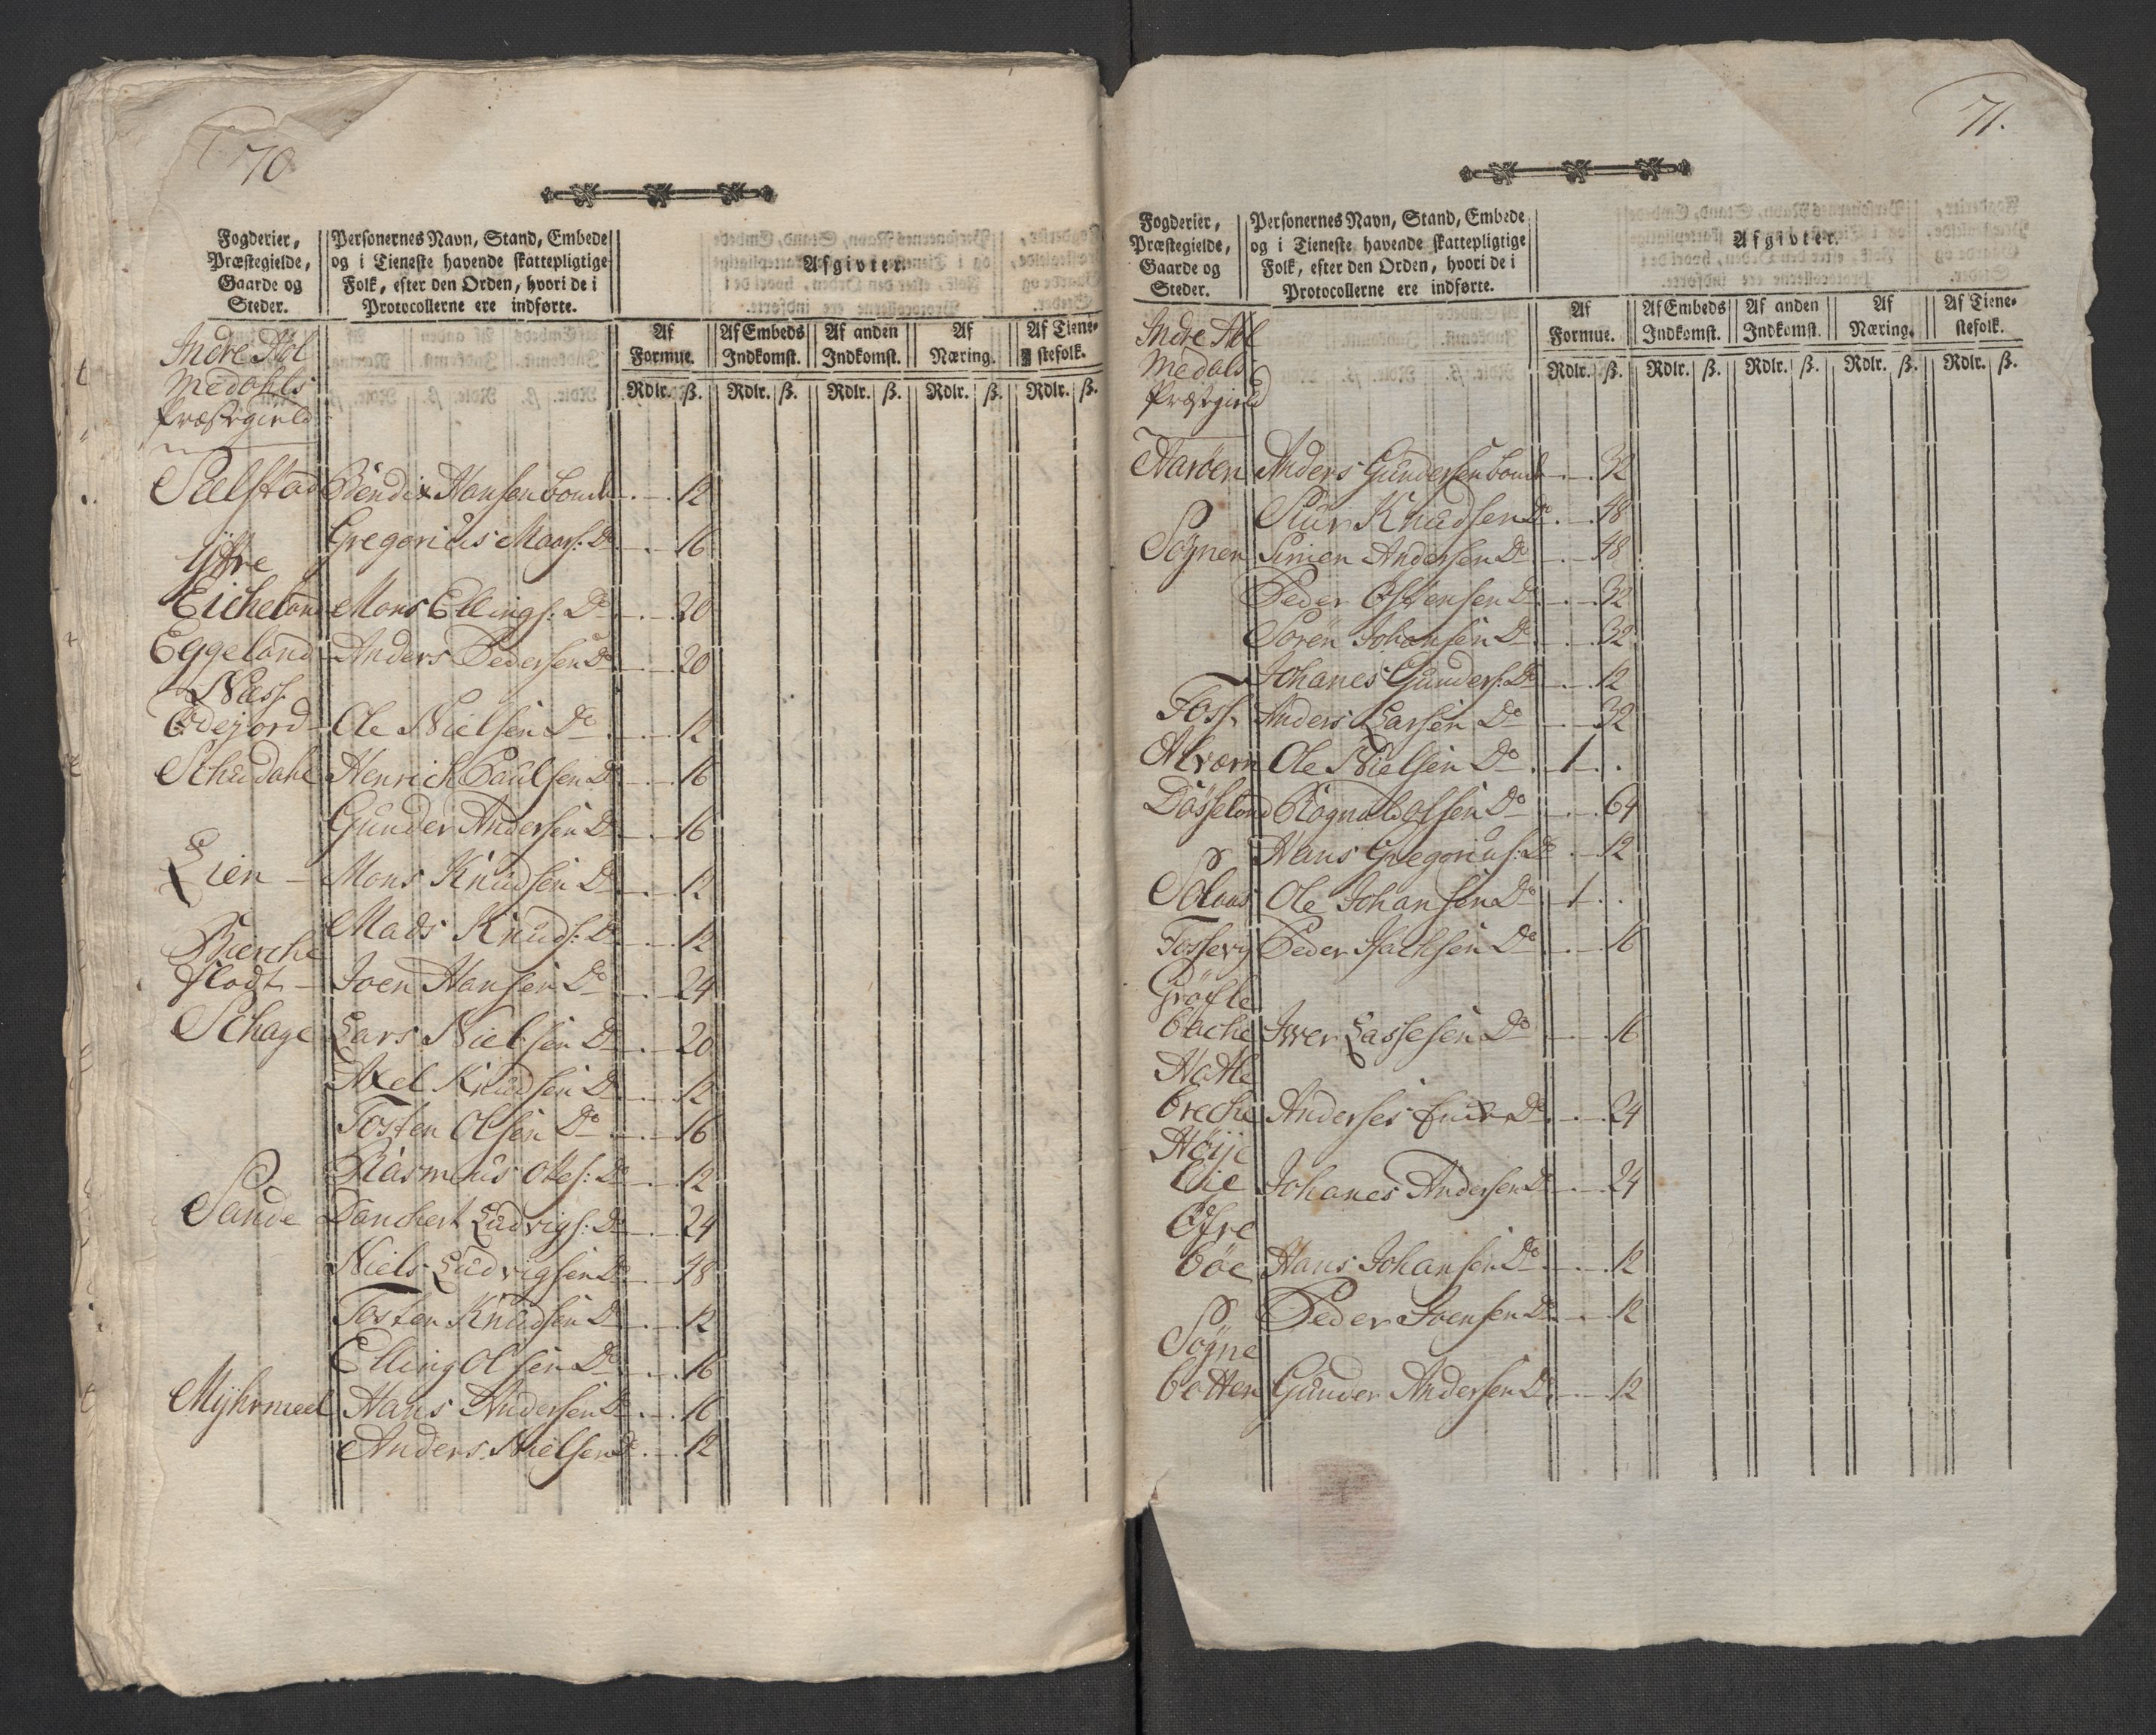 70
Fogderier,
Præstegielde,
Gaarde og
Steder.
Personernes Navn, Stand, Embede
og i Tieneste havende skattepligtige
Folk, efter den Orden, hvori de i
Protocollerne ere indførte.
Afgivter.
Af Formue.
Af Embeds Indkomst.
Af anden Indkomst.
Af Næring.
Af Tiene-stefolk.
Rdlr. ß. Rdlr. ß. Rdlr. ß. Rdlr. ß. Rdlr. ß.
Indre Hol
medahls
Præstegield
Sælstad Bendix Hansen bonde 12
Gregorius Mons: Do 16
Ÿttre
Eicheland Mons Ellings: Do 20
Eggeland Anders Pedersen Do 20
Næss
Ødejord Ole Nielsen Do 12
Schredahl Henrich Paulsen Do 16
Gunder Andersen Do 16
Lien Mons Knudsen Do 12
Mads Knuds: Do 12
Bierche
flodt Joen Hansen Do 24
Schage Lars Nielsen Do 20
Axel Knudsen Do 12
Tosten Olsen Do 16
Rasmus Oles: Do 12
Sande Danchert Ludvigs: Do 24
Niels Ludvigsen Do 48
Tosten Knudsen Do 12
Elling Olsen Do 16
Mÿhrmeel Hans Andersen Do 16
Anders Nielsen Do 12
71.
Fogderier,
Præstegielde,
Gaarde og
Steder.
Personernes Navn, Stand, Embede
og i Tieneste havende skattepligtige
Folk, efter den Orden, hvori de i
Protocollerne ere indførte.
Afgivter.
Af Formue.
Af Embeds Indkomst.
Af anden Indkomst.
Af Næring.
Af Tiene-stefolk.
Rdlr. ß. Rdlr. ß. Rdlr. ß. Rdlr. ß. Rdlr. ß.
Indre Hol
medals
Præstgield
Aarøen Anders Gundersen bonde 32
Siur Knudsen Do 48
Søgnen Simen Andersen Do 48
Peder Østensen Do 32
Søren Johansen Do 32
Johanes Gunders: Do 12
Foss Anders Larsen Do 32
Alværn Ole Nielsen Do 1
Døsseland Rognald Olsen Do 64
Hans Gregorius: Do 12
Solaas Ole Johansen Do 1
Fossevig Peder Isachsen Do 16
Grøfle
bache Iver Lassesen Do 16
Hatle
breche Anderses Do 24
Høije
Lie Johanes Andersen Do 24
Øfre
bøe Hans Johansen Do 12
Peder Joensen Do 12
Søgne
botten Gunder Andersen Do 12